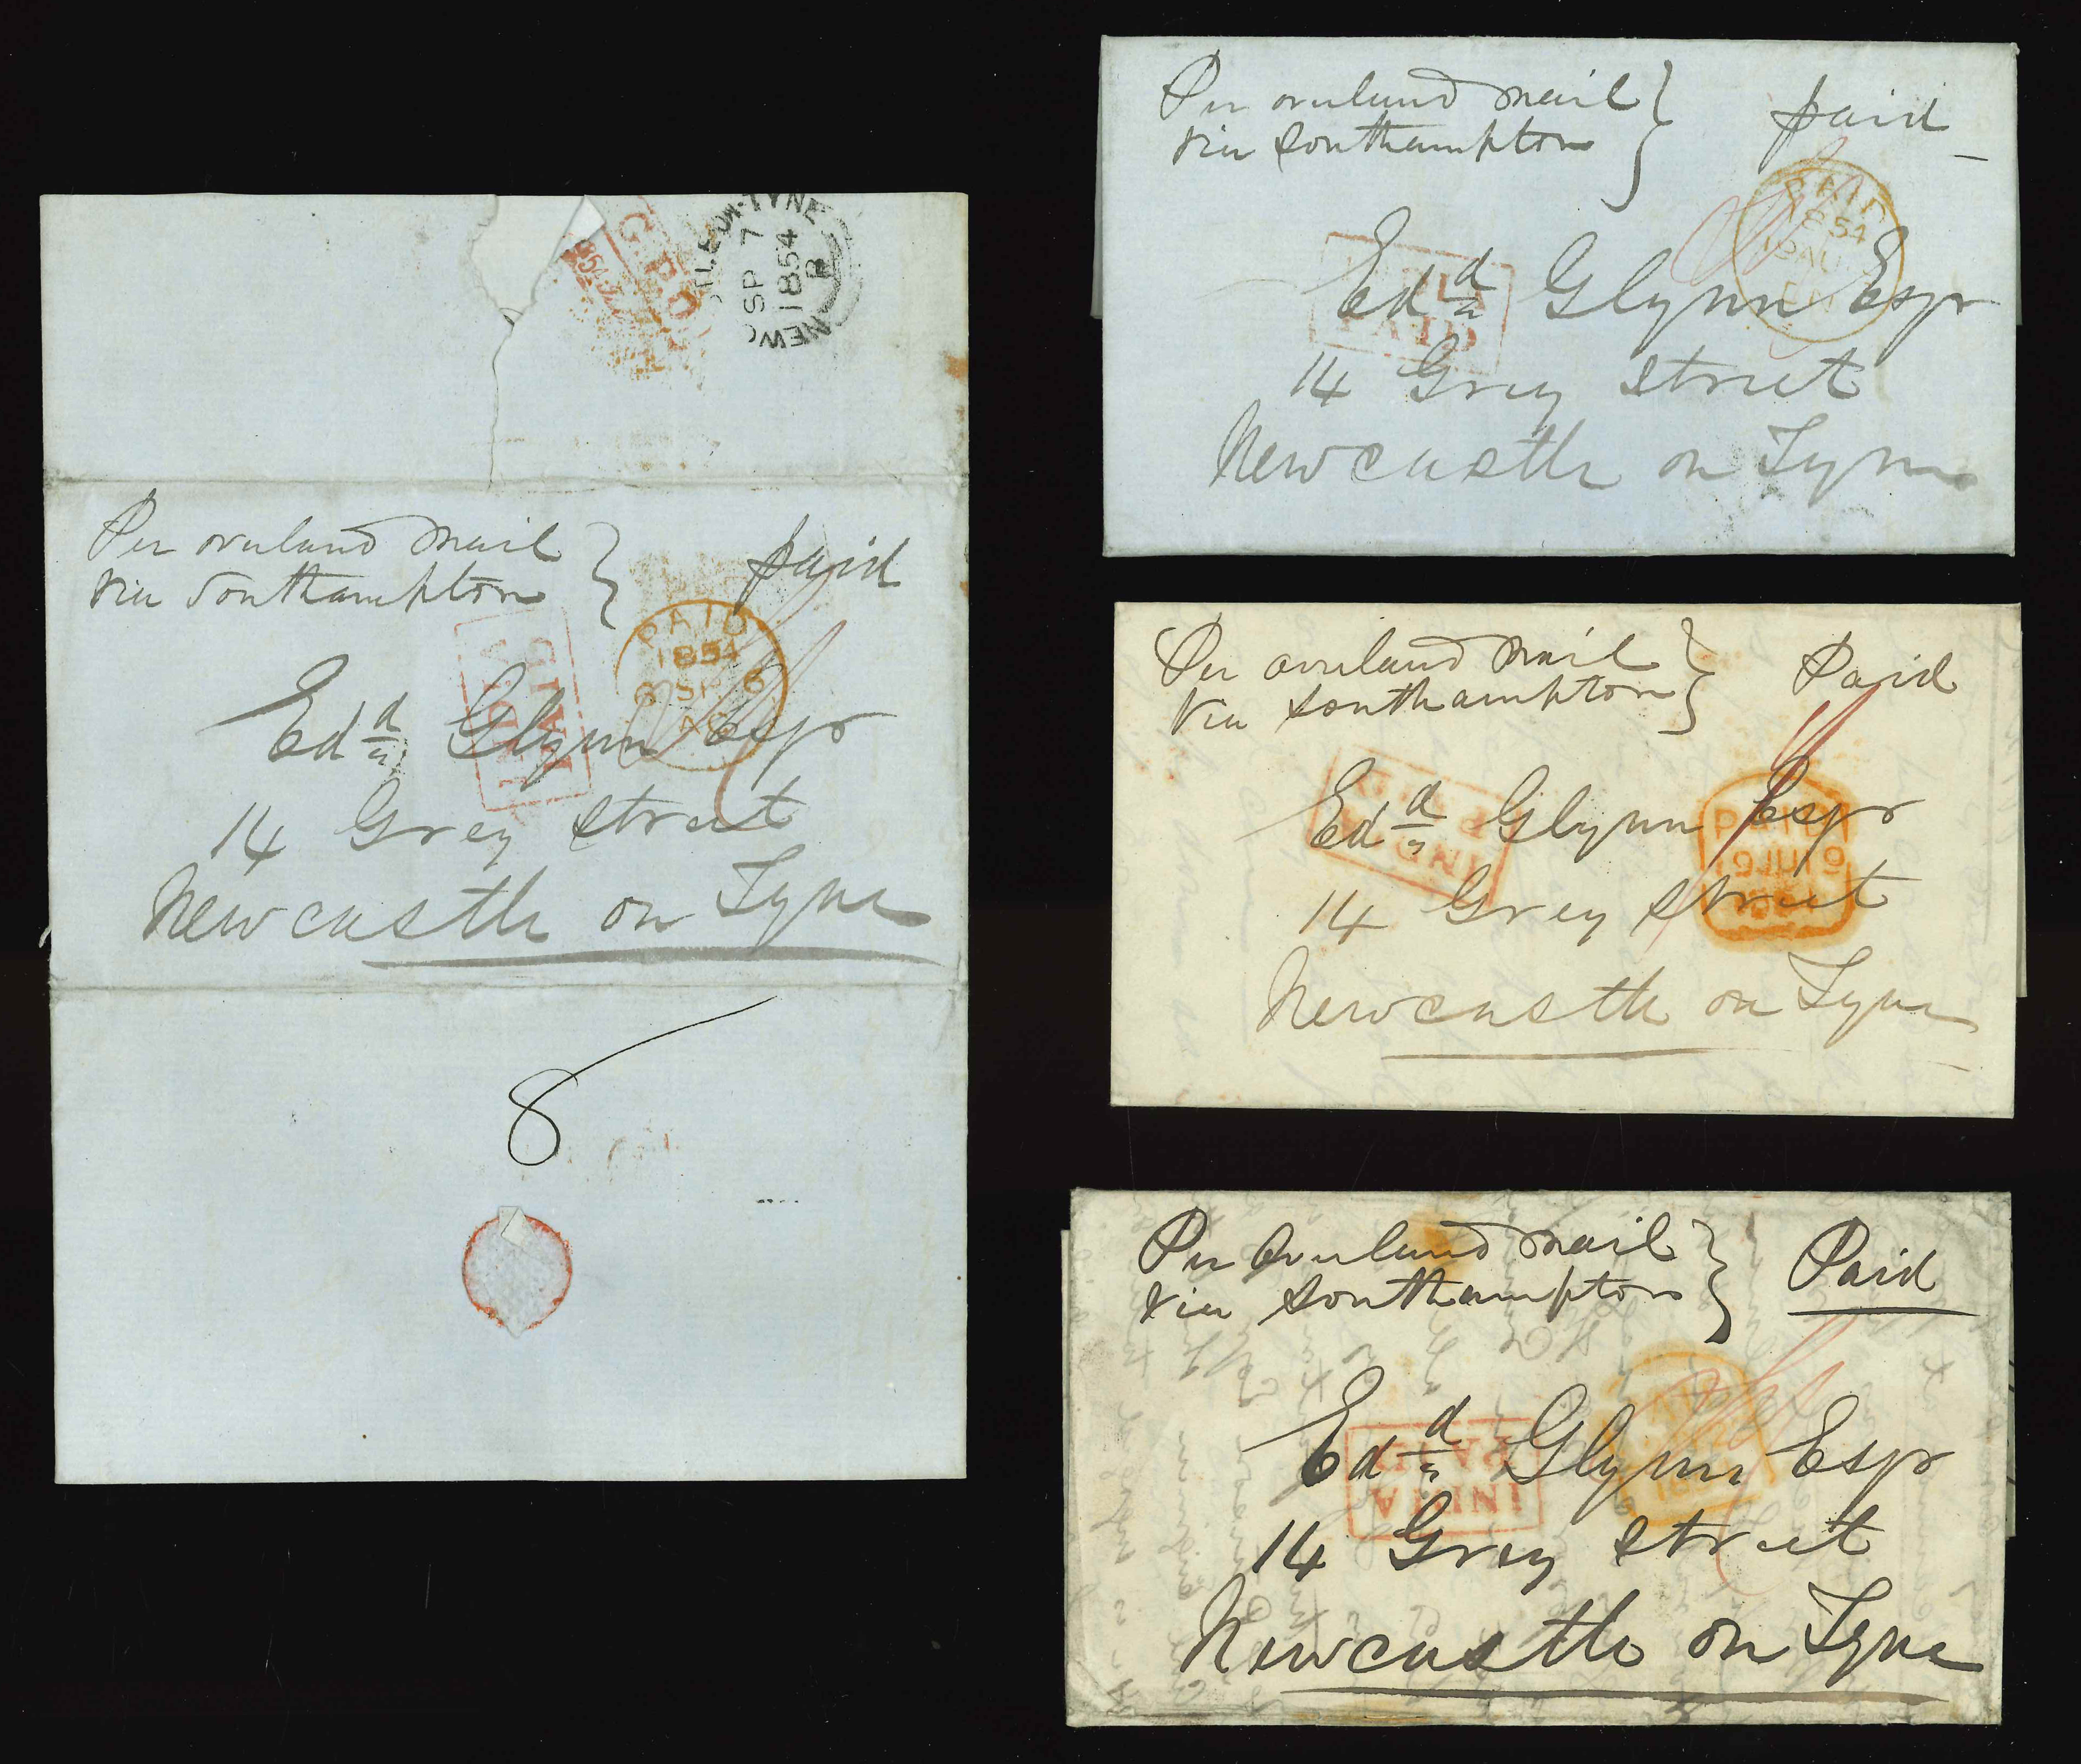 G.P.O
NEWCASTLE-ON-TYNE
SP 7
1854
B
Per overland mail
via Southampton
paid
PAID
1854
6 SP 6
INDIA
PAID
Edd Glynn Esqr
14 Grey Street
Newcastle on Tyne
8
Per overland mail
via Southampton
paid
PAID
1854
AU
PAID
Edd Glynn Esqr
14 Grey Street
Newcastle on Tyne
Per overland mail
via Southampton
Paid
IND
PAID
19 JU 19
Edd Glynn Esqr
14 Grey Street
Newcastle on Tyne
Per Overland mail
via Southampton
Paid
INDIA
PAID
Edd Glynn Esqr
14 Grey Street
Newcastle on Tyne